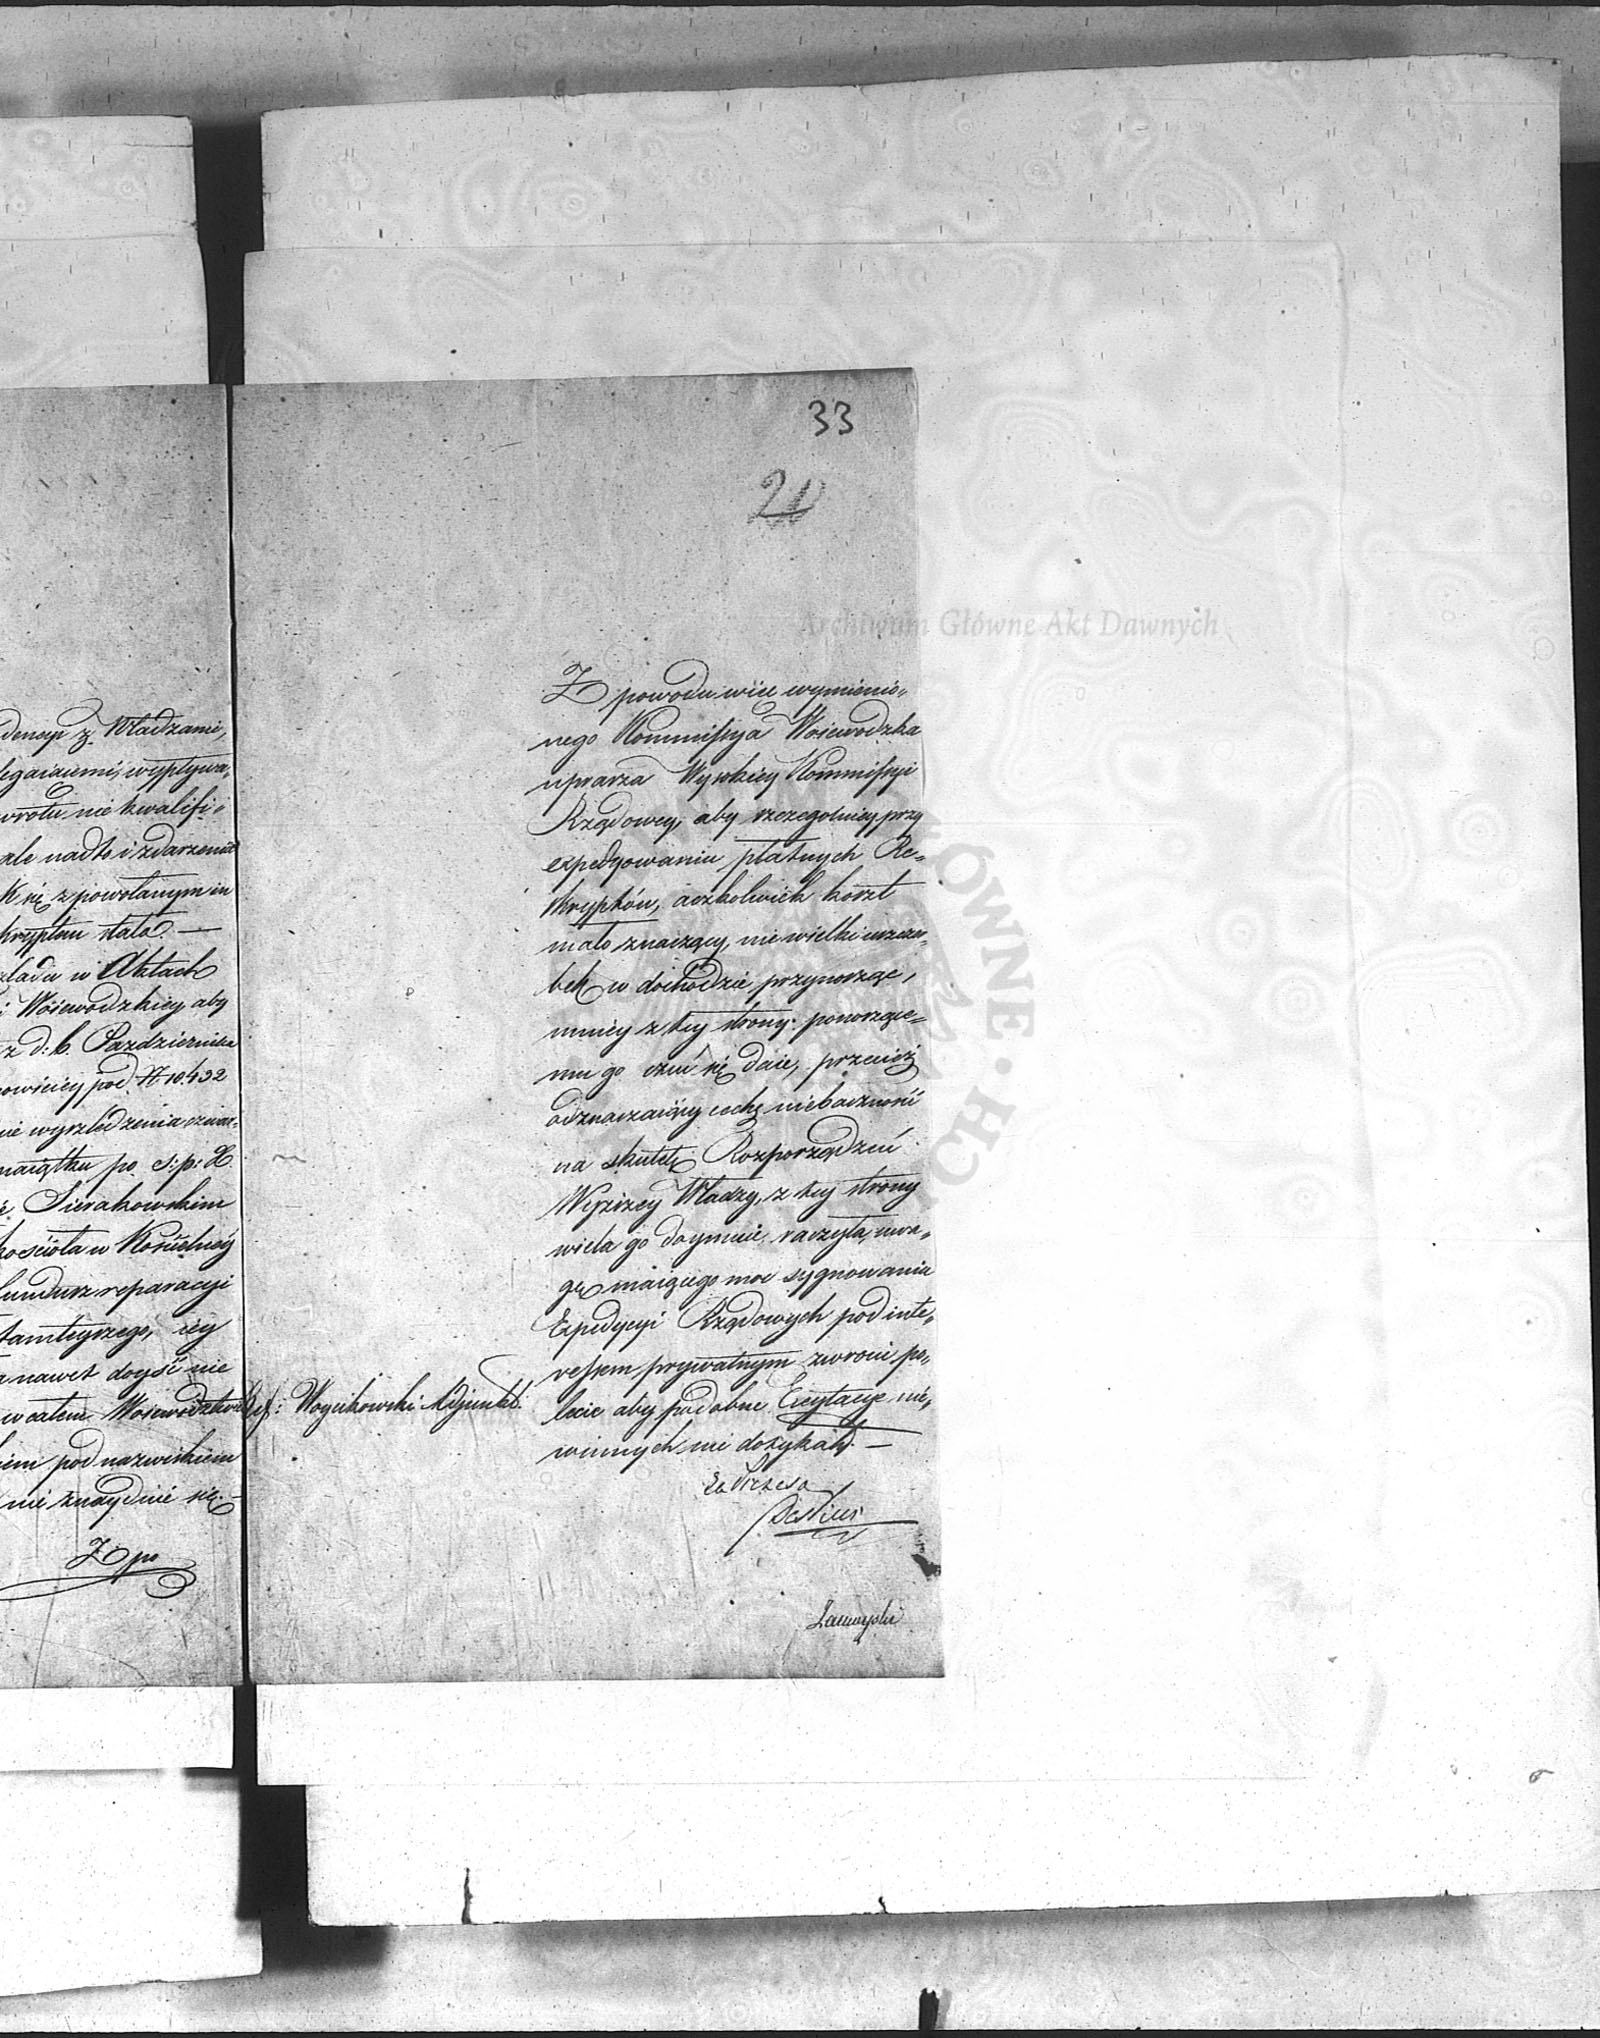 33
21
dencyi z Władzami,
legaiącemi, wypływa„
wrotu nie kwalifi„
ale nadto i zdarzenie
K się z powołanym in
kryptem stało. —
zładu w Aktach
i Woiewodzkiey aby
z d: 6. Października
owiciey pod N 10.432
nie wyśledzenia czwar„
maiątku po ś: p: X
Sierakowskim
kościoła w Kościelney
fundusz reparacyi
tamteyszego, icy
a nawet doyść nie
w całem Woiewodztwie
iem pod nazwiskiem
nie znayduie się. —
Z po
Z powodu więc wymienio„
nego Kommissya Woiewodzka
uprasza Wysokiey Kommissyi
Rządowey, aby szczegolniey przy
expedyowaniu płatnych Re„
skryptów, aczkolwiek koszt
mało znaczący, nie wielki uszczer„
bek w dochodzie przynosząc,
mniey z tey strony ponoszące„
mu go czuć się daie, przecież
odznaczaiący cechę niebaczności
na skutek Rozporządzeń
Wyższey Władzy, z tey strony
wiela go doymuie, raczyła uwa„
gę maiącego moc sygnowania
Expedycyi Rządowych pod inte„
ressem prywatnym zwrocić po„
lecić aby podobne Excytacye nie„
winnych nie dotykały. —
Ref: Woycikowski Adjunkt.
Za Prezesa